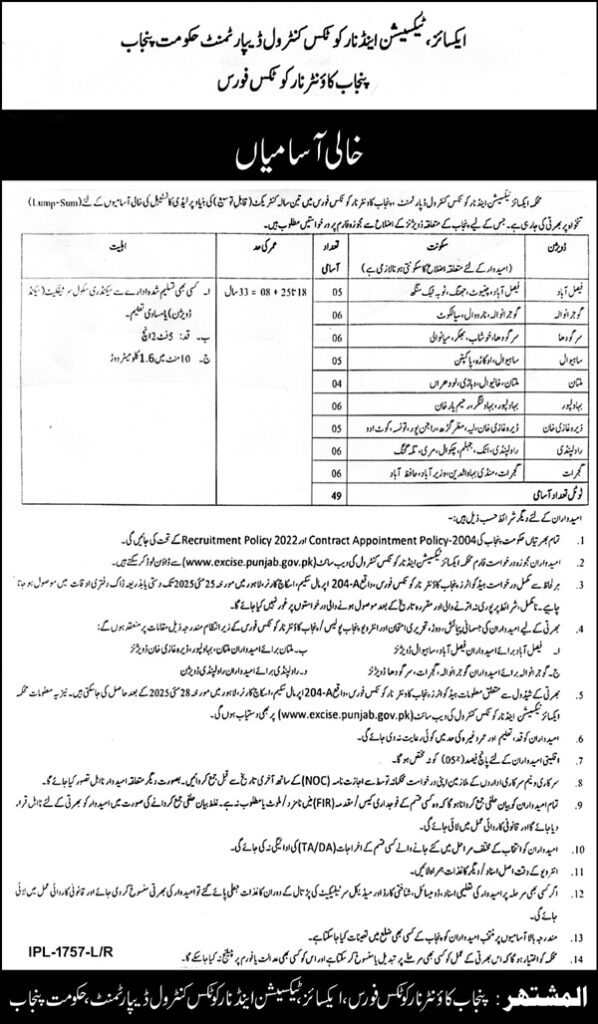 ایکسائز، ٹیکسیشن اینڈ نارکوٹکس کنٹرول ڈیپارٹمنٹ حکومت پنجاب
پنجاب کاؤنٹر نارکوٹکس فورس
خالی آسامیاں
محکمہ ایکسائز ٹیکسیشن اینڈ نارکوٹکس کنٹرول ڈیپارٹمنٹ، پنجاب کاؤنٹر نارکوٹکس فورس میں تین سالہ کنٹریکٹ (قابل توسیع) کی بنیاد پر لیڈی کانسٹیبل کی خالی آسامیوں کے لئے (Lump-Sum)
تنخواہ پر بھرتی کی جارہی ہے۔ جس کے لیے پنجاب کے متعلقہ ڈویژنز کے اضلاع سے مجوزہ فارم پر درخواستیں مطلوب ہیں۔
ڈویژن سکونت تعداد عمر کی حد اہلیت
(امیدوار کے لئے متعلقہ اضلاع کا سکونتی ہونا لازمی ہے) آسامی
فیصل آباد فیصل آباد، چنیوٹ، جھنگ، ٹوبہ ٹیک سنگھ 05 18 تا 25 + 08 = 33 سال ا۔ کسی بھی تسلیم شدہ ادارے سے سیکنڈری سکول سرٹیفکیٹ (سیکنڈ
گوجرانوالہ گوجرانوالہ، نارووال، سیالکوٹ 06 ڈویژن) یا مساوی تعلیم۔
سرگودھا سرگودھا، خوشاب، بھکر، میانوالی 06 ب۔ قد: 5 فٹ 2 انچ
ساہیوال ساہیوال، اوکاڑہ، پاکپتن 05 ج۔ 10 منٹ میں 1.6 کلومیٹر دوڑ
ملتان ملتان، خانیوال، وہاڑی، لودھراں 04
بہاولپور بہاولپور، بہاولنگر، رحیم یار خان 06
ڈیرہ غازی خان ڈیرہ غازی خان، لیہ، مظفر گڑھ، راجن پور، تونسہ، کوٹ ادو 05
راولپنڈی راولپنڈی، اٹک، جہلم، چکوال، مری، تلہ گنگ 06
گجرات گجرات، منڈی بہاؤالدین، وزیر آباد، حافظ آباد 06
ٹوٹل تعداد آسامی 49
امیدواران کے لئے دیگر شرائط حسب ذیل ہیں:-
1. تمام بھرتیاں حکومت پنجاب کی Contract Appointment Policy-2004 اور Recruitment Policy 2022 کے تحت کی جائیں گی۔
2. امیدواران مجوزہ درخواست فارم محکمہ ایکسائز ٹیکسیشن اینڈ نارکوٹکس کنٹرول کی ویب سائٹ (www.excise.punjab.gov.pk) سے ڈاؤن لوڈ کرسکتے ہیں۔
3. ہر لحاظ سے مکمل درخواست ہیڈ کوارٹرز پنجاب کاؤنٹر نارکوٹکس فورس، واقع 204-A اپر مال سکیم، اسکاچ کارنر، لاہور میں مورخہ 25 مئی 2025 تک دستی یا بذریعہ ڈاک دفتری اوقات میں موصول ہو جانا
چاہیے۔ نامکمل، شرائط پر پوری نہ اترنے والی اور مقررہ تاریخ کے بعد موصول ہونے والی درخواستوں پر غور نہیں کیا جائے گا۔
4. بھرتی کے لیے امیدواران کی جسمانی پیمائش، دوڑ، تحریری امتحان اور انٹرویو پنجاب پولیس/پنجاب کاؤنٹر نارکوٹکس فورس کے زیر انتظام مندرجہ ذیل مقامات پر منعقد ہوں گے:
ا۔ فیصل آباد برائے امیدواران فیصل آباد، ساہیوال ڈویژنز ب۔ ملتان برائے امیدواران ملتان، بہاولپور، ڈیرہ غازی خان ڈویژنز
ج۔ گوجرانوالہ برائے امیدواران گوجرانوالہ، گجرات، سرگودھا ڈویژنز د۔ راولپنڈی برائے امیدواران راولپنڈی ڈویژن
5. بھرتی کے شیڈول سے متعلق معلومات ہیڈ کوارٹرز پنجاب کاؤنٹر نارکوٹکس فورس، واقع 204-A اپر مال سکیم، اسکاچ کارنر، لاہور میں مورخہ 28 مئی 2025 کے بعد حاصل کی جاسکتی ہیں۔ نیز یہ معلومات محکمہ
ایکسائز ٹیکسیشن اینڈ نارکوٹکس کنٹرول کی ویب سائٹ (www.excise.punjab.gov.pk) پر بھی دستیاب ہوں گی۔
6. امیدواران کو قد، تعلیم اور عمر وغیرہ کی حد میں کوئی رعایت نہ دی جائے گی۔
7. اقلیتی امیدواران کے لئے پانچ فیصد (05%) کوٹہ مختص ہوگا۔
8. سرکاری و نیم سرکاری اداروں کے ملازمین اپنی درخواست محکمانہ توسط سے اجازت نامہ (NOC) کے ساتھ آخری تاریخ سے قبل جمع کروائیں۔ بصورت دیگر متعلقہ امیدوار نااہل تصور کیا جائے گا۔
9. تمام امیدواران کو بیان حلفی جمع کروانا ہوگا کہ وہ کسی قسم کے فوجداری کیس/مقدمہ (FIR) میں نامزد/ملوث یا مطلوب نہ ہے۔ غلط بیان حلفی جمع کروانے کی صورت میں امیدوار کو بھرتی کے لئے نااہل قرار
دیا جائے گا اور قانونی کاروائی عمل میں لائی جائے گی۔
10. امیدواران کو انتخاب کے مختلف مراحل میں کئے جانے والے کسی قسم کے اخراجات (TA/DA) کی ادائیگی نہ کی جائے گی۔
11. انٹرویو کے وقت اصل اسناد/دیگر کاغذات ہمراہ لائیں۔
12. اگر کسی بھی مرحلہ پر امیدوار کی تعلیمی اسناد، ڈومیسائل، شناختی کارڈ اور میڈیکل سرٹیفکیٹ کی پڑتال کے دوران کاغذات جعلی پائے گئے تو امیدوار کی بھرتی منسوخ کر دی جائے اور قانونی کاروائی عمل میں لائی
جائے گی۔
13. مندرجہ بالا آسامیوں پر منتخب امیدواران کو پنجاب کے کسی بھی ضلع میں تعینات کیا جاسکتا ہے۔
14. محکمہ کو اختیار ہوگا کہ اس بھرتی کے عمل کو کسی بھی مرحلے پر تبدیل یا منسوخ کر سکتا ہے اور اس کو کسی بھی عدالت یا فورم پر چیلنج نہ کیا جاسکے گا۔
IPL-1757-L/R
المشتہر: پنجاب کاؤنٹر نارکوٹکس فورس، ایکسائز، ٹیکسیشن اینڈ نارکوٹکس کنٹرول ڈیپارٹمنٹ، حکومت پنجاب